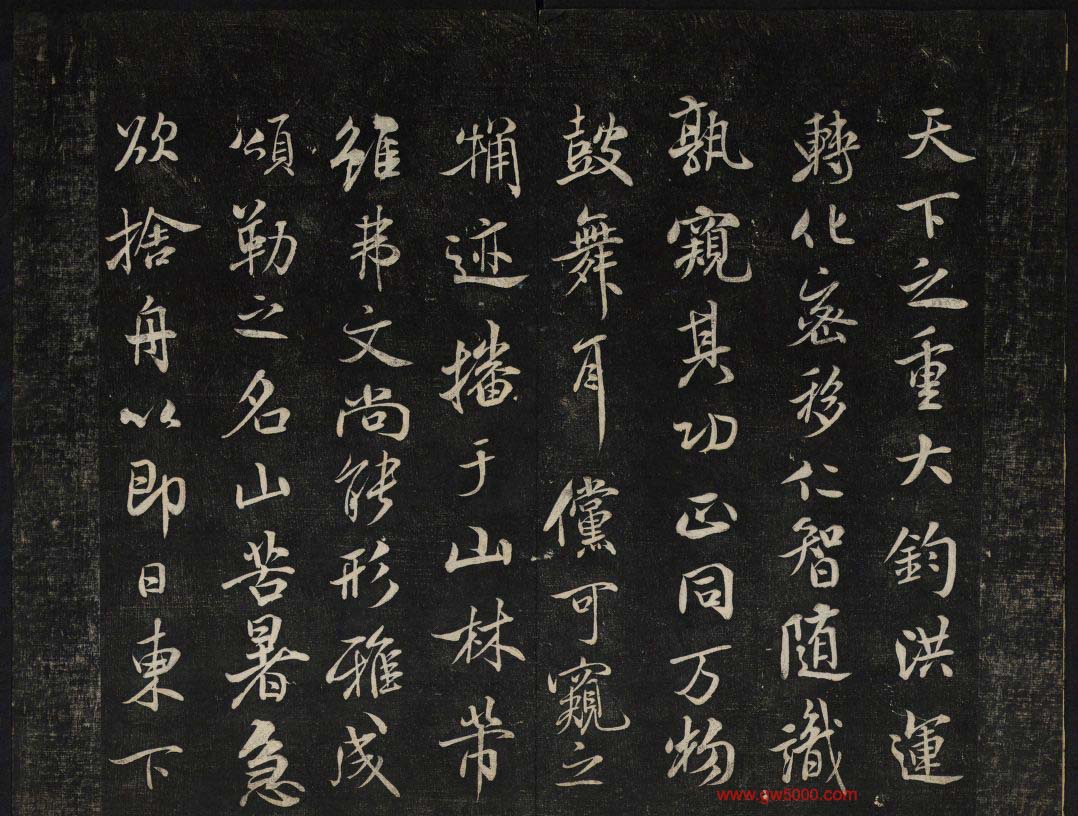 天下之重大鈞洪運
轉化密移仁智随識
孰窺其功正同万物
鼓舞耳儻可窺之
迹播于山林芾
雖弗文尚能形雅成
頌勒之名山苦暑急
欲捨舟以即日東下
www.gw5000.com